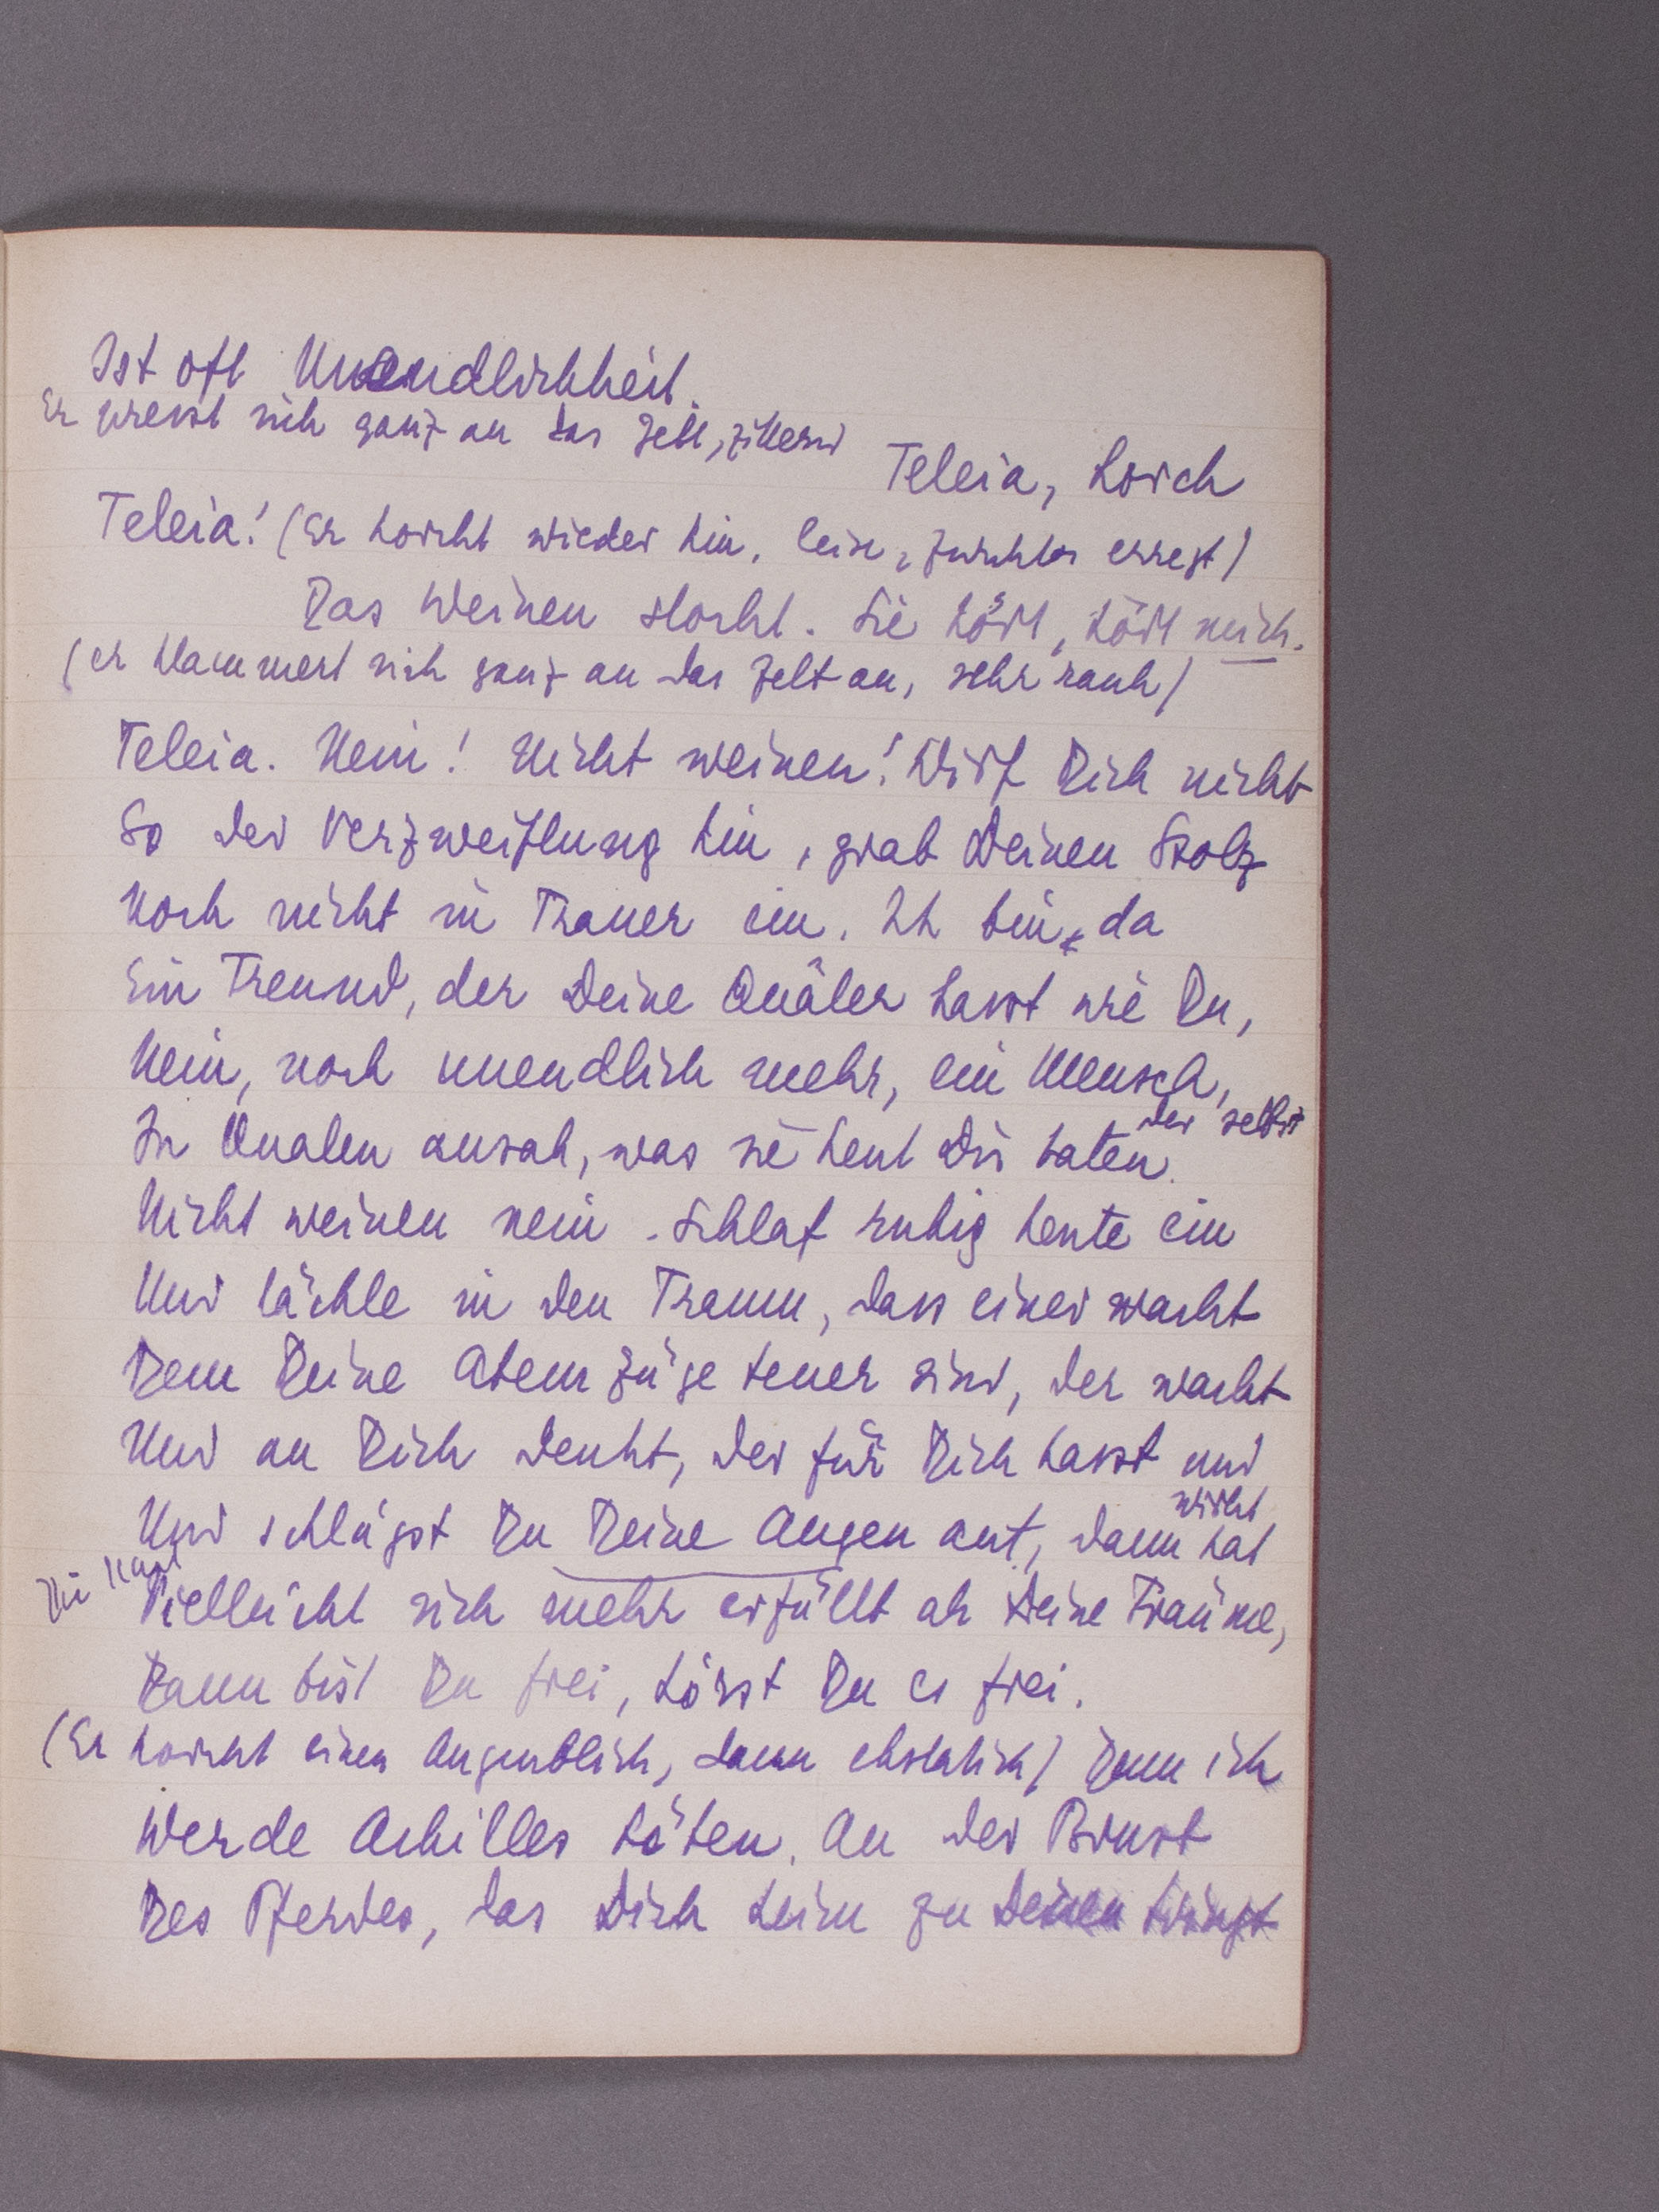 Ist oft Unendlichkeit.
Er presst sich ganz an das Zelt, zitternd
Teleia, horch
Teleia! (Er horcht wieder hin, leise, furchtbar erregt)
Das Weinen stockt. Sie hört, hört mich.
(er klammert sich ganz an das Zelt an, sehr rauh)
Teleia. Nein! Nicht weinen! Wirf Dich nicht
So der Verzweiflung hin, grab Deinen Stolz
Noch nicht in Trauer ein. Ich bin da
Ein Freund, der Deine Quäler hasst wie Du,
Nein, noch unendlich mehr, ein Mensch,
der selbst
In Qualen ansah, was sie heut Dir taten.
Nicht weinen nein. Schlaf ruhig heute ein
Und lächle in den Traum, dass einer wacht
Dem Deine Atemzüge teuer sind, der wacht
Und an Dich denkt, der für Dich hasst und
wirkt
Und schlägst Du Deine Augen auf, dann hat
Die Nacht
Vielleicht sich mehr erfüllt als Deine Träume,
Dann bist Du frei, hörst Du es frei.
(Er horcht einen Augenblick, dann) Denn ich
Werde Achilles töten. An der Brust
Des Pferdes, das Dich heim zu Deinen bringt